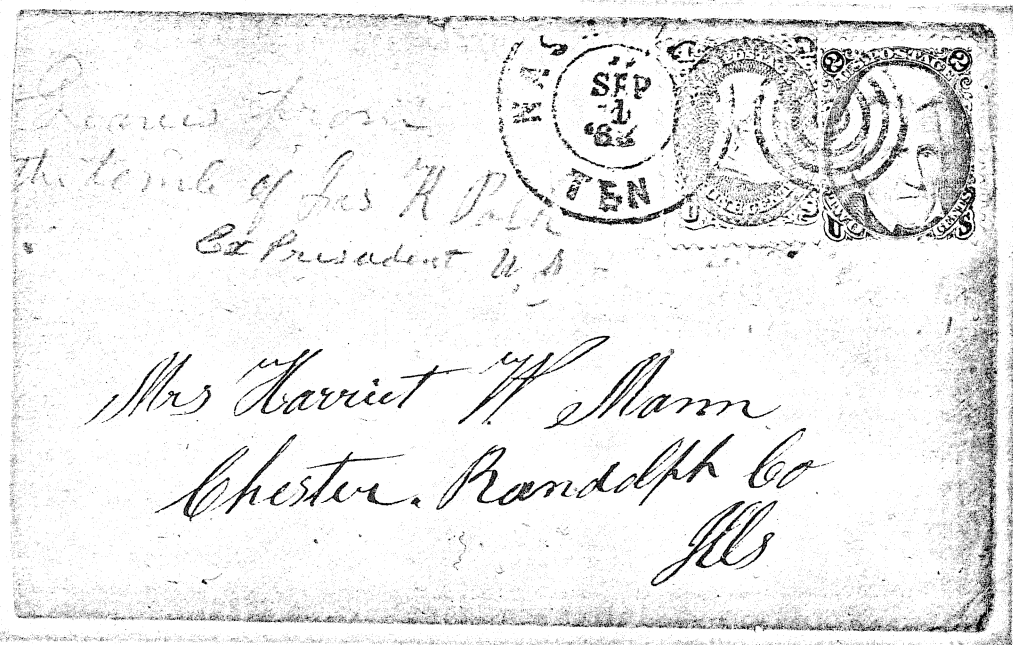 Leaves from
the tomb of Jas K Polk
Ex President U.S
NAS
SEP
1
TEN
2 U.S. POSTAGE 2
U S
U S
Mrs Harriet W. Mann
Chester. Randolph Co
Ills